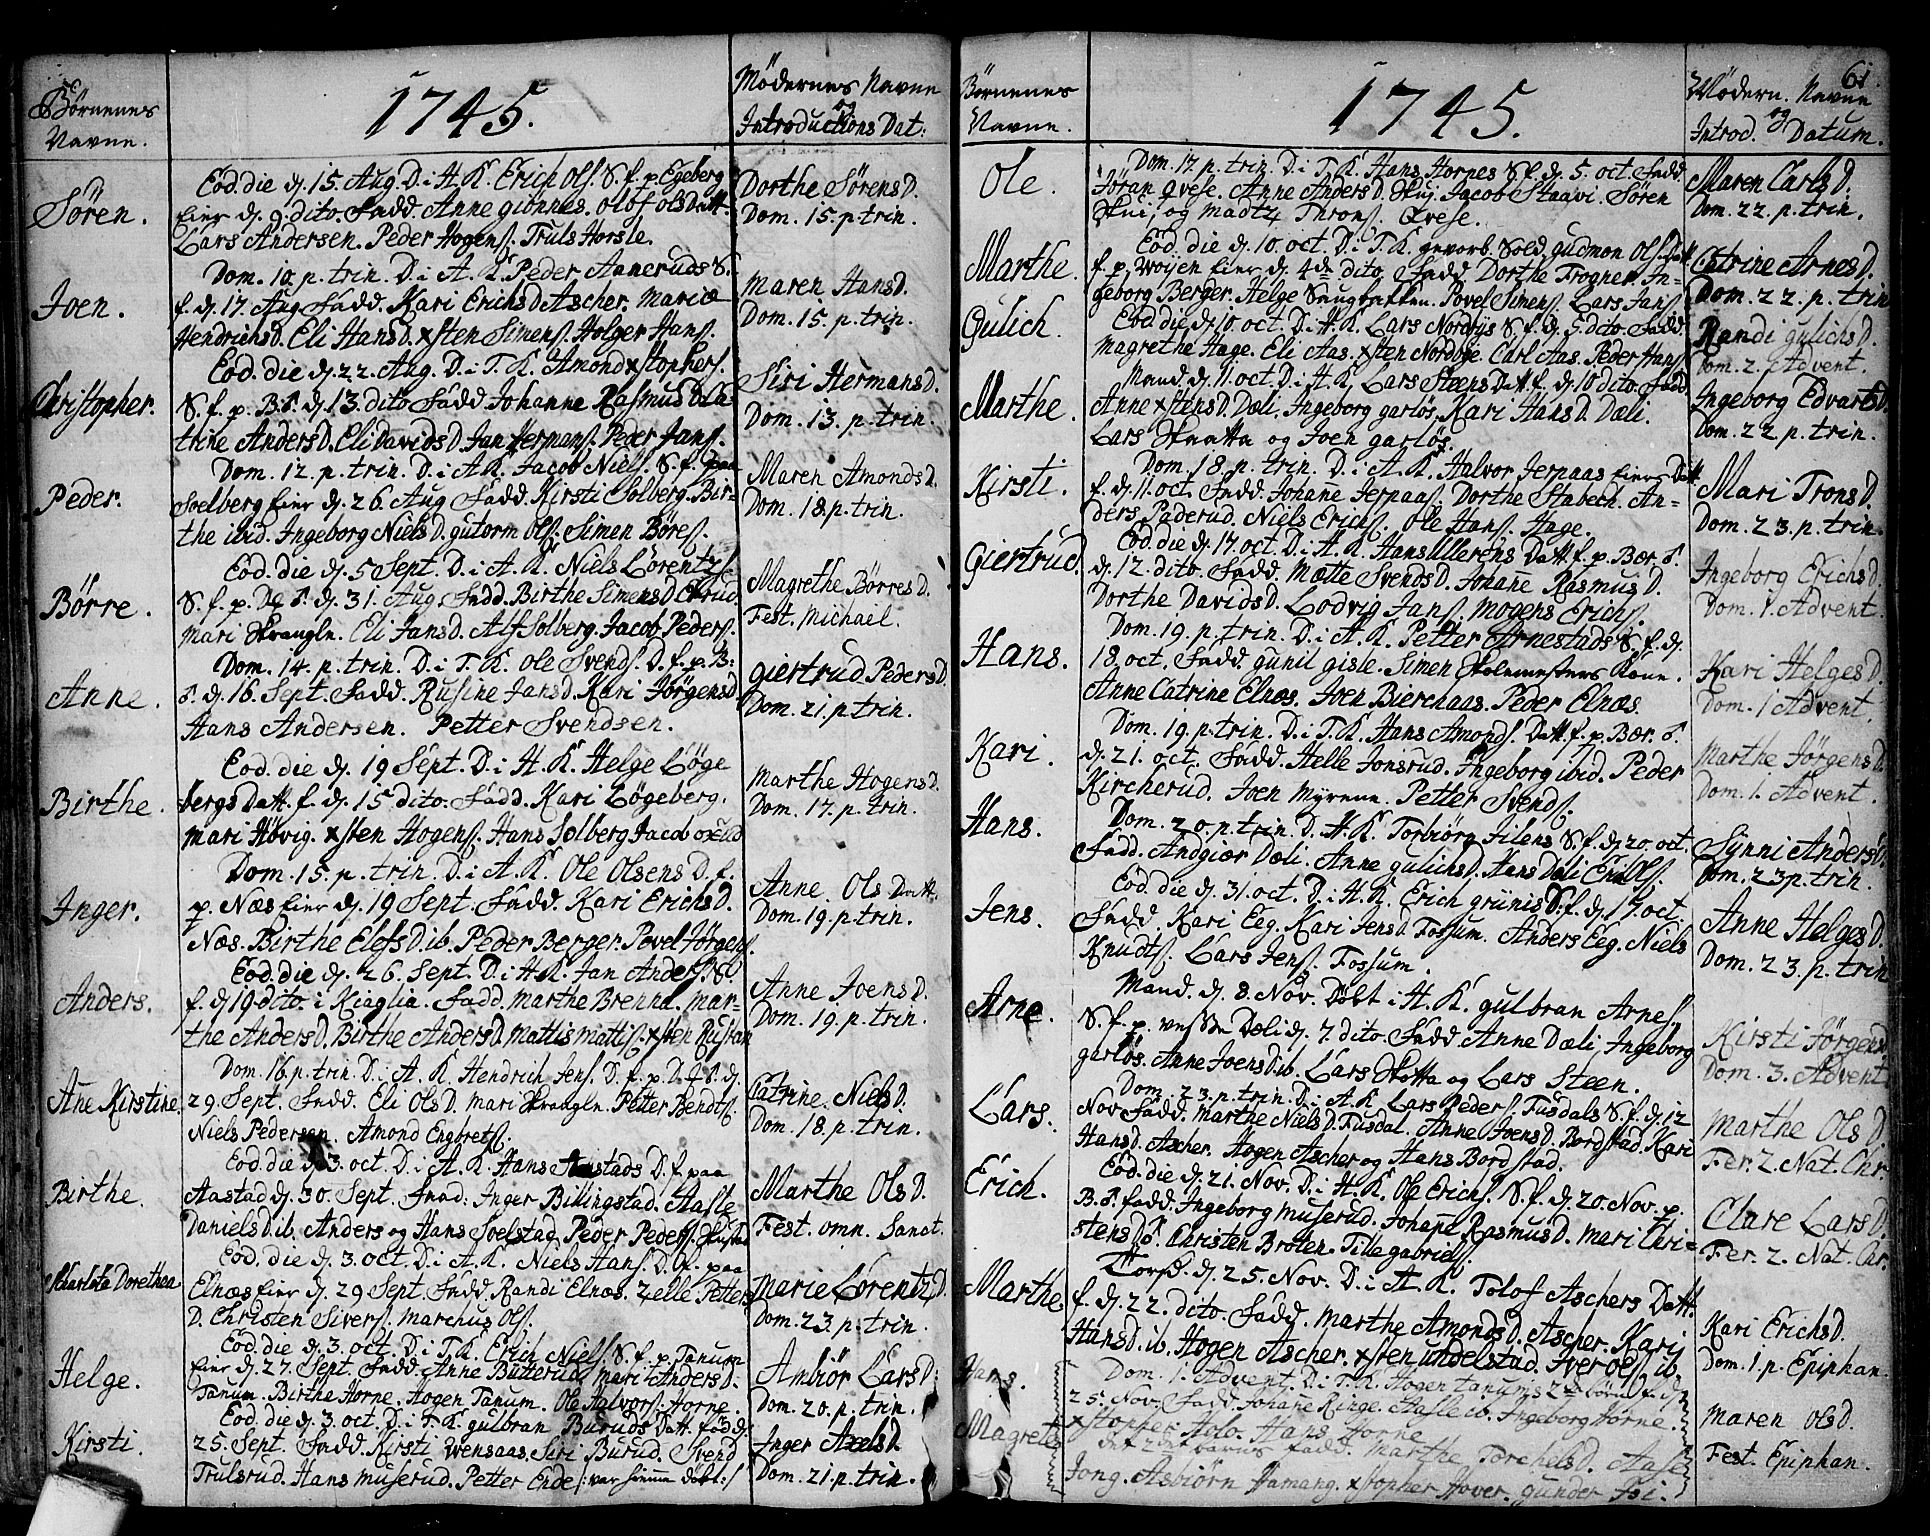 Børnenes
Navne.
1745.
Mödernes Navne
og
Introductions Dat:
Sören.
Eod. die d. 15. Aug. D. i H. K. Erich Ols. S. f. p. Egeberg
Eier d. 9. dito. Fadd. Anne gionnes. Olof Ols Datt.
Lars Andersen. Peder Hogens. Truls Horsle.
Dorthe SörensD.
Dom. 15. p. trin.
Joen.
Dom. 10. p. trin. D. i A. K. Peder Aaneruds S.
f. d. 17. Aug. Fadd. Kari ErichsD. Ascher. Mariæ
HendrichsD. Eli HansD. xsten Simens. Holger Hans.
Maren HansD.
Dom. 15. p. trin.
Christopher.
Eod. die d. 22. Aug. D. i T. K. Amond xstophers.
S. f. p. B. d. 13. dito Fadd Johanne RasmusD. Ca-
thrine AndersD. Eli DavidsD Jan Hermans. Peder Jans.
Siri HermansD.
Dom. 13. p. trin.
Peder.
Dom. 12. p. trin. D. i A. K. Jacob Niels. S. f. paa
Soelberg Eier d. 26. Aug Fadd. Kirsti Solberg. Bir-
the ibid. Ingeborg NielsD. gutorm Ols. Simen Börs.
Maren AmondsD.
Dom. 18. p. trin.
Börre.
Eod. die d. 5 Sept. D. i A. K. Niels Lörentz
S. f. p. d. 31. Aug. Fadd. Birthe SimensD
Mari Skrangln. Eli JansD. Alf Solberg. Jacob Peders.
Magrethe BörresD.
Fest. Michael.
Anne.
Dom. 14. p. trin. D. i T. K. Ole Svends. D. f. p. B:
d. 16. Sept. Fadd. Rusine JansD. Kari JörgensD
Hans Andersen. Petter Svendsen.
giertrud PedersD.
Dom. 21. p trin.
Birthe.
Eod. die d. 19 Sept. D. i H. K. Helge Löge
bergs Datt. f. d. 15 dito. Fadd. Kari Lögeberg.
Mari Hövig. xsten Hogens. Hans Solberg Jacob
Marthe HogensD.
Dom. 17. p. trin.
Inger.
Dom. 15. p. trin. D. i A. K. Ole Olsens D. f.
p. Næs Eier d. 19 Sept. Fadd. Kari ErichsD.
Næs. Birthe ElefsD. ib. Peder Berger. Povel Jörgens.
Anne Ols Datt.
Dom. 19. p. trin.
Anders.
Eod. die d. 26. Sept. D. i H. K. Jan Anders. S.
f. d. 19. dito. i Kiaglia. Fadd. Marthe Brenna. Mar-
the AndersD. Birthe AndersD. Mattis Mattis. xsten Rustan
Anne JoensD.
Dom. 19. p. trin.
Ane Kirstine.
Dom. 16. p. trin. D. i A. K. Hendrich Jens. D. f. p. d.
29. Sept. Fadd. Eli OlsD. Mari Skrangln. Petter Bendts.
Niels Pedersen. Amond Engbrets.
Catrine. NielsD.
Dom. 18. p. trin.
Birthe.
Eod. die d. 3. oct. D. i A. K. Hans Aastads D. f. paa
Aastad d. 30. Sept. Fadd. Inger Billingstad. Aasle
DanielsD ib. Anders og Hans Soelstad. Peder Peders.
Marthe OlsD.
Fest. omn. Sanct.
Charlota Dorethea
Eod. die d. 3. oct. D. i A. K. Niels Hans. D. f. paa
Elnæs Eier d. 29 Sept. Fadd. Randi Elnæs. Zelle Petters
D. Christen Sivers. Marchus Ols.
Marie LörentzD.
Dom. 23. p. trin.
Helge.
Eod. die d. 3. oct. D. i T. K. Erich Niels. S. f. p. Tanum
Eier d. 27. Sept. Fadd. Anne Butterud. Mari AndersD.
Tanum. Birthe Horne. Hogen Tanum. Ole Halvors. Horne.
Ambiör LarsD.
Dom. 20. p. trin.
Kirsti.
Eod. die d. 3. oct. D. i T. K. gulbran Buruds Datt. föd d.
25. Sept. Fadd. Kirsti Wensaas. Siri Burud. Svend
Trulsrud. Hans Muserud. Petter Ende /: var hiemme döbt :/
Inger AxelsD.
Dom. 21. p. trin.
61.
Börnenes
Navne.
1745.
Mödern. Navne
og
Introd. Datum.
Ole.
Dom. 17. p. trin. D. i T. K. Hans Hornes S. f. d. 5. oct. Fadd.
Jöran Qvese. Anne AndersD. Skui. Jacob Staavi. Sören
Skui, og Madtz Throns. Qvese.
Maren CarlsD.
Dom. 22. p. trin.
Marthe.
Eod. die d. 10. oct. D. i T. K. gevorb. Sold. gudmon Ols. Datt.
f. p. Wöyen Eier d. 4de dito. Fadd Dorthe Trogner. In-
geborg Berger. Helge Saugbakken. Povel Simens. Lars Jans.
Catrine ArnesD.
Dom. 22. p. trin
Gulich.
Eod. die d. 10. oct. D. i H. K. Lars Nordbys S. f. d. 5. dito. Fadd.
Magrethe Hage. Eli Aas. xsten Nordbye. Carl Aas. Peder Hans
Randi gulichsD.
Dom. 2. Advent.
Marthe.
Mand. d. 11. oct. D. i H. K. Lars Steens Datt. f. d. 10 dito. Fadd
Anne xstensD. Dæli. Ingeborg garlös. Kari HansD. Dæli.
Lars Skotta og Joen garlös.
Ingeborg EdvartsD.
Dom. 22 p. trin.
Kirsti.
Dom. 18. p. trin. D. i A. K. Halvor Jerpaas Eiers Datt
f. d. 11. oct. Fadd. Johañe Jerpaas. Dorthe Stabech. An-
ders Paderud. Niels Erichs. Ole Hans. Hage.
Mari TronsD.
Dom. 23. p. trin.
Giertrud.
Eod. die d. 17. oct. D. i A. K. Hans Ullerens Datt. f. p. Bær.
d. 12. dito. Fadd. Mætte SvendsD. Johañe RasmusD.
Dorthe DavidsD. Lodvig Jans. Mogens Erichs.
Ingeborg ErichsD.
Dom. 1. Advent.
Hans.
Dom. 19. p. trin. D. i A. K. Petter Arnestads S. f. d.
18. oct. Fadd. gunil gisle. Simen Skolemesters Kone.
Anne Catrine Elnæs. Joen Bierenaas. Peder Elnæs.
Kari HelgesD.
Dom. 1 Advent.
Kari.
Dom. 19. p. trin. D. i T. K. Hans Amonds. Datt. f. p. Bær.
d. 21. oct. Fadd. Helle Jonsrud. Ingeborg ibid. Peder
Kircherud. Joen Myrene. Petter Svends.
Marthe JörgensD
Dom. 1. Advent.
Hans.
Dom. 20. p. trin. D. H. K. Torbiörg Jilens S. f. d. 20. oct.
Fadd. Andgiær Dæli. Anne gulichsD. Hans Dæli Erich Ols.
Synni AndersD.
Dom. 23 p. trin.
Jens.
Eod. die d. 31. oct. D. i H. K. Erich grünis S. f. d. 17. oct.
Fadd. Kari Eeg. Kari JensD. Fossum. Anders Eeg. Niels
Knudts. Lars Jens. Fossum.
Anne HelgesD.
Dom. 23. p. trin
Arne.
Mand. d. 8. Nov. Döbt i H. K. gulbran Arnes
S. f. p. Dæli d. 7. dito. Fadd. Anne Dæli. Ingeborg
garlös. Anne JoensD. ib. Lars Skotta og Lars Steen.
Kirsti JörgensD
Dom. 3. Advent
Lars.
Dom. 23. p. trin. D. i A. K Lars Peders. Tusdals S. f. d. 12
Nov. Fadd. Marthe NielsD. Tusdal. Anne JoensD. Bordstad. Kari
HansD. Ascher. Hogen Ascher og Hans Bordstad.
Marthe OlsD.
Fer. 2. Nat. Chr:
Erich.
Eod. die d. 21. Nov. D. i H. K. Ole Erichs. S. f. d. 20. Nov. p.
B. fadd. Ingeborg Muserud. Johañe RasmusD. Mari Chri-
stensD. Christen Broten. Tille gabriels.
Clare LarsD.
Fer. 2. Nat. Chr.
Marthe.
Torsd. d. 25. Nov. D. i A. K. Tolof Aschers Datt.
f. d. 22. dito. Fadd. Marthe AmondsD. Ascher. Kari
HansD. ib. Hogen Ascher. xsten undelstad. Iver Oes ib.
Kari ErichsD.
Dom. 1. p. Epiphan.
Hans.
Dom. 1. Advent. D. i T. K. Hogen tanums 2de börn f. d.
25. Nov. Fadd. Johañe Ringe. Aasle ib. Ingeborg Horne.
xstopher Holo. Hans Horne
Maren OlsD.
Fest. Epiphan.
Magrete
det 2det barns fadd. Marthe TorchelsD. Aase
Jong. Asbiörn Hamang. xstopher Hover. gunder